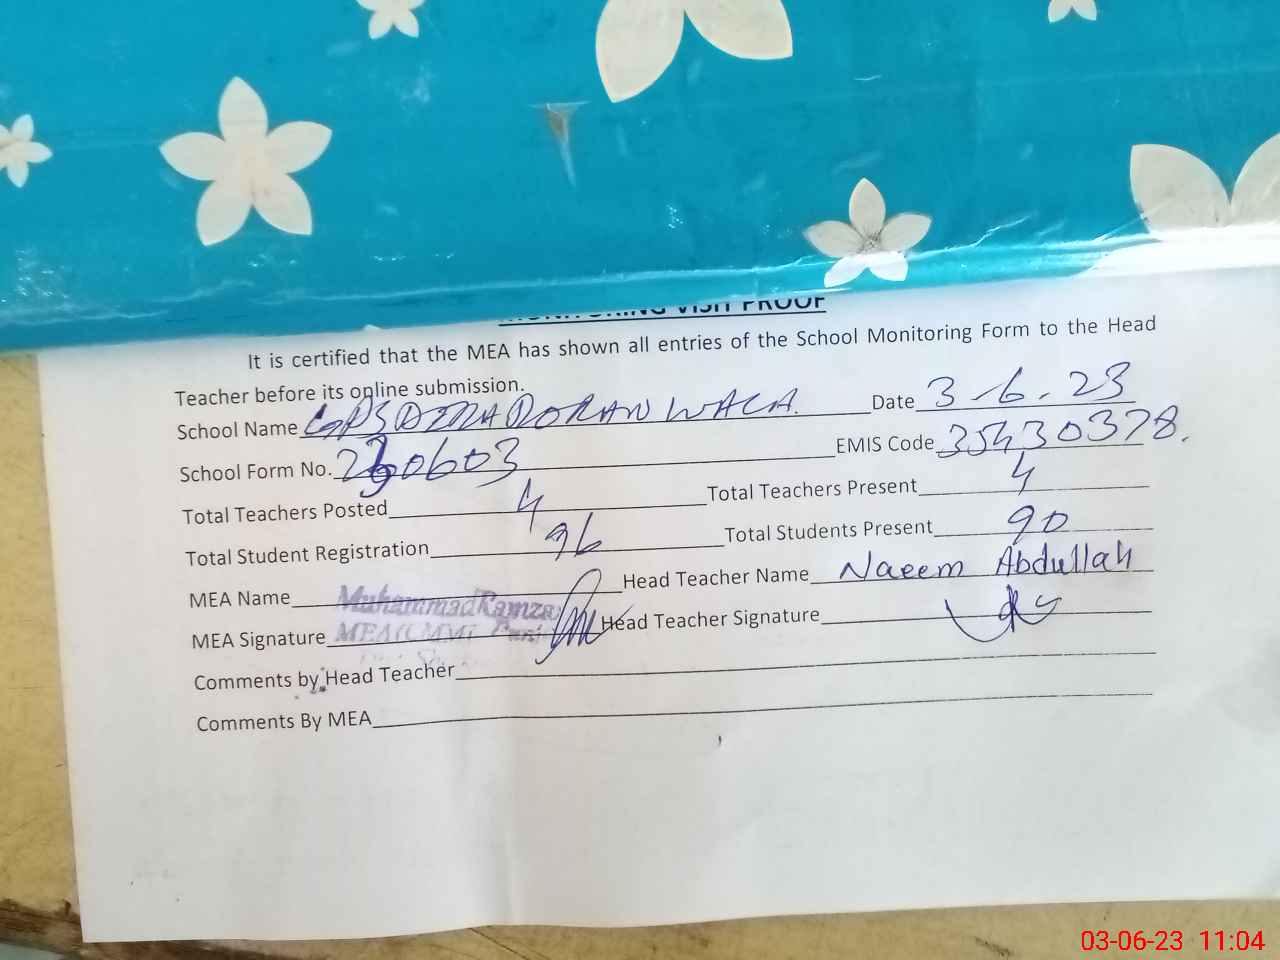 MONITORING VISIT PROOF
It is certified that the MEA has shown all entries of the School Monitoring Form to the Head
Teacher before its online submission.
School Name GPS DERA DORAN WALA. Date 3-6.23
School Form No. 230603 EMIS Code 35430378.
Total Teachers Posted 4 Total Teachers Present 4
Total Student Registration 96 Total Students Present 90
MEA Name Muhammad Ramzan Head Teacher Name Naeem Abdullah
MEA Signature MEA (CMMF Head Teacher Signature
Comments by Head Teacher
Comments By MEA
03-06-23 11:04